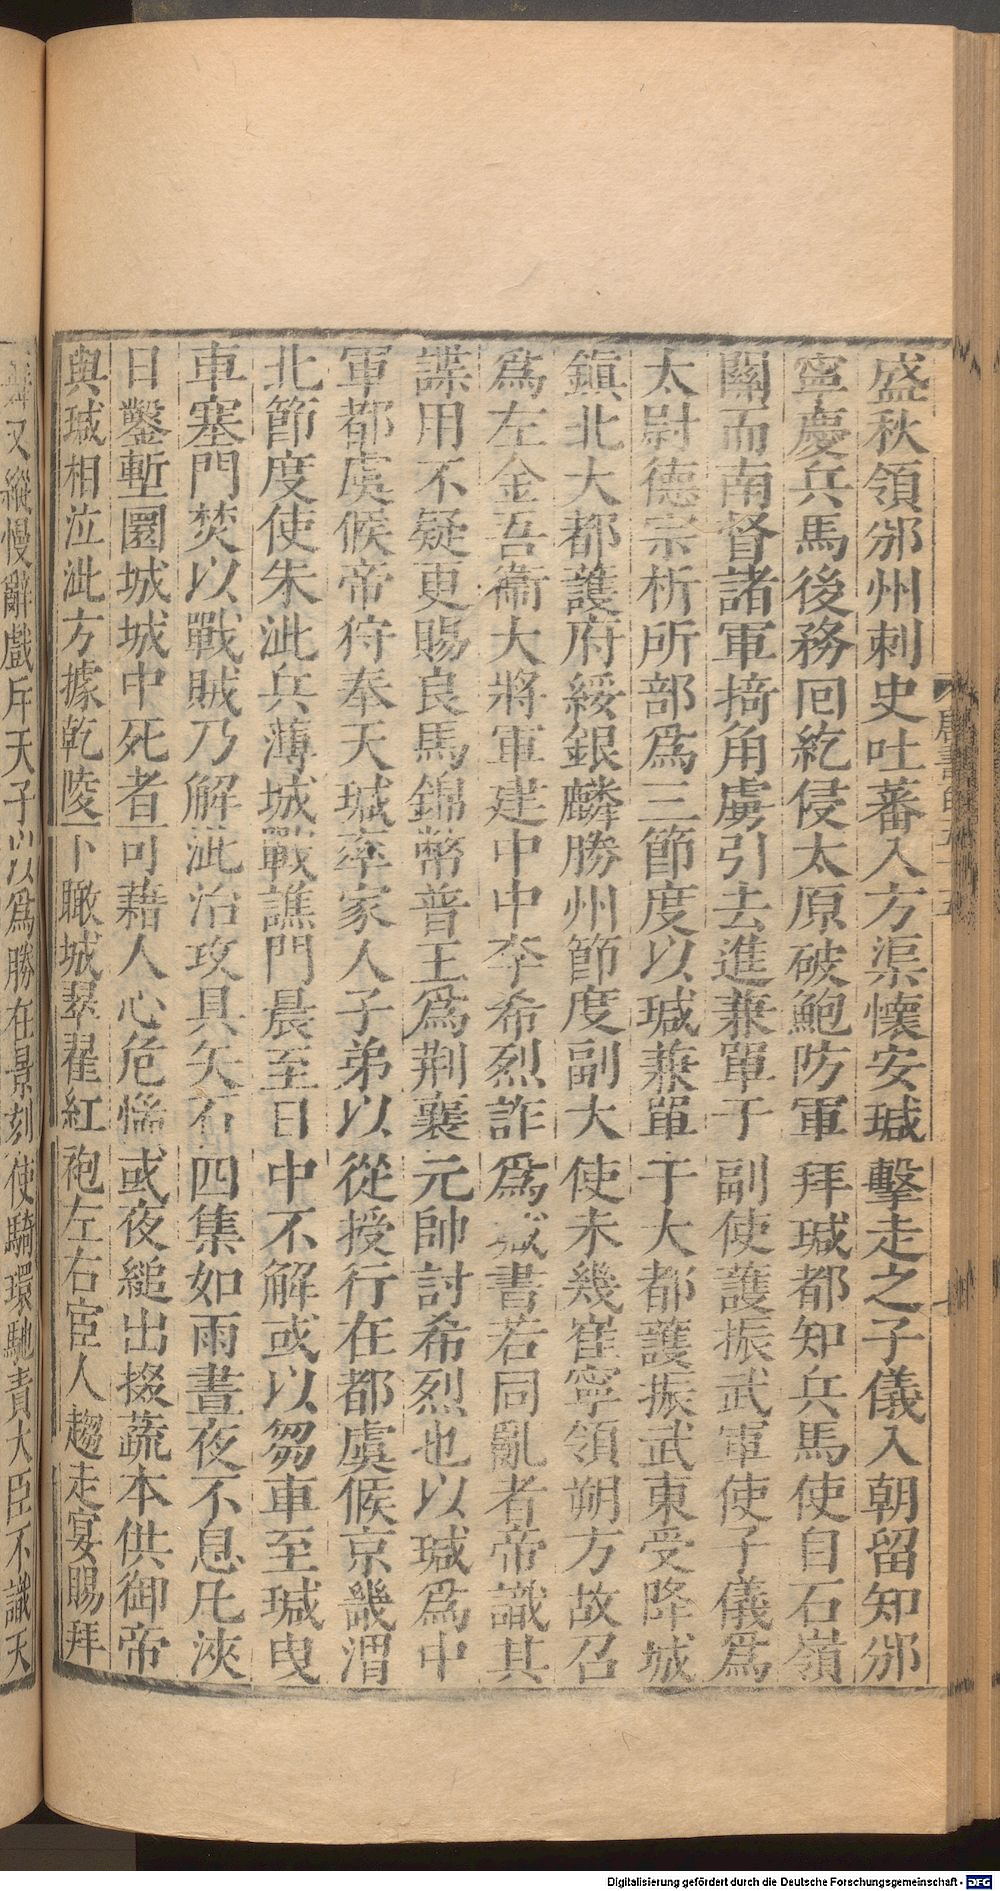 盛秋領邠州刺史吐蕃入方渠懷安瑊擊走之子儀入朝留知邠
寧慶兵馬後務囘紇侵太原破鮑防軍拜瑊都知兵馬使自石嶺
關而南督諸軍掎角虜引去進兼單于副使護振武軍使子儀爲
太尉德宗析所部爲三節度以瑊兼單于大都護振武東受降城
鎭北大都護府綏銀麟勝州節度副大使未幾崔寧領朔方故召
爲左金吾衞大將軍建中中李希烈詐爲瑊書若同亂者帝識其
諜用不疑更賜良馬錦幣普王爲荆襄元帥討希烈也以瑊爲中
軍都虞候帝狩奉天瑊率家人子弟以從授行在都虞候京畿渭
北節度使朱泚兵薄城戰譙門晨至日中不解或以芻車至瑊曳
車塞門焚以戰賊乃解泚治攻具矢石四集如雨晝夜不息凡浹
日鑿塹圜城城中死者可藉人心危惴或夜縋出掇蔬本供御帝
與瑊相泣泚方據乾陵下瞰城翠翟紅袍左右宦人趨走宴賜拜
又縱慢辭戲斥天子以爲勝在景刻使騎環馳責大臣不識天
唐書
Digitalisierung gefördert durch die Deutsche Forschungsgemeinschaft - DFG